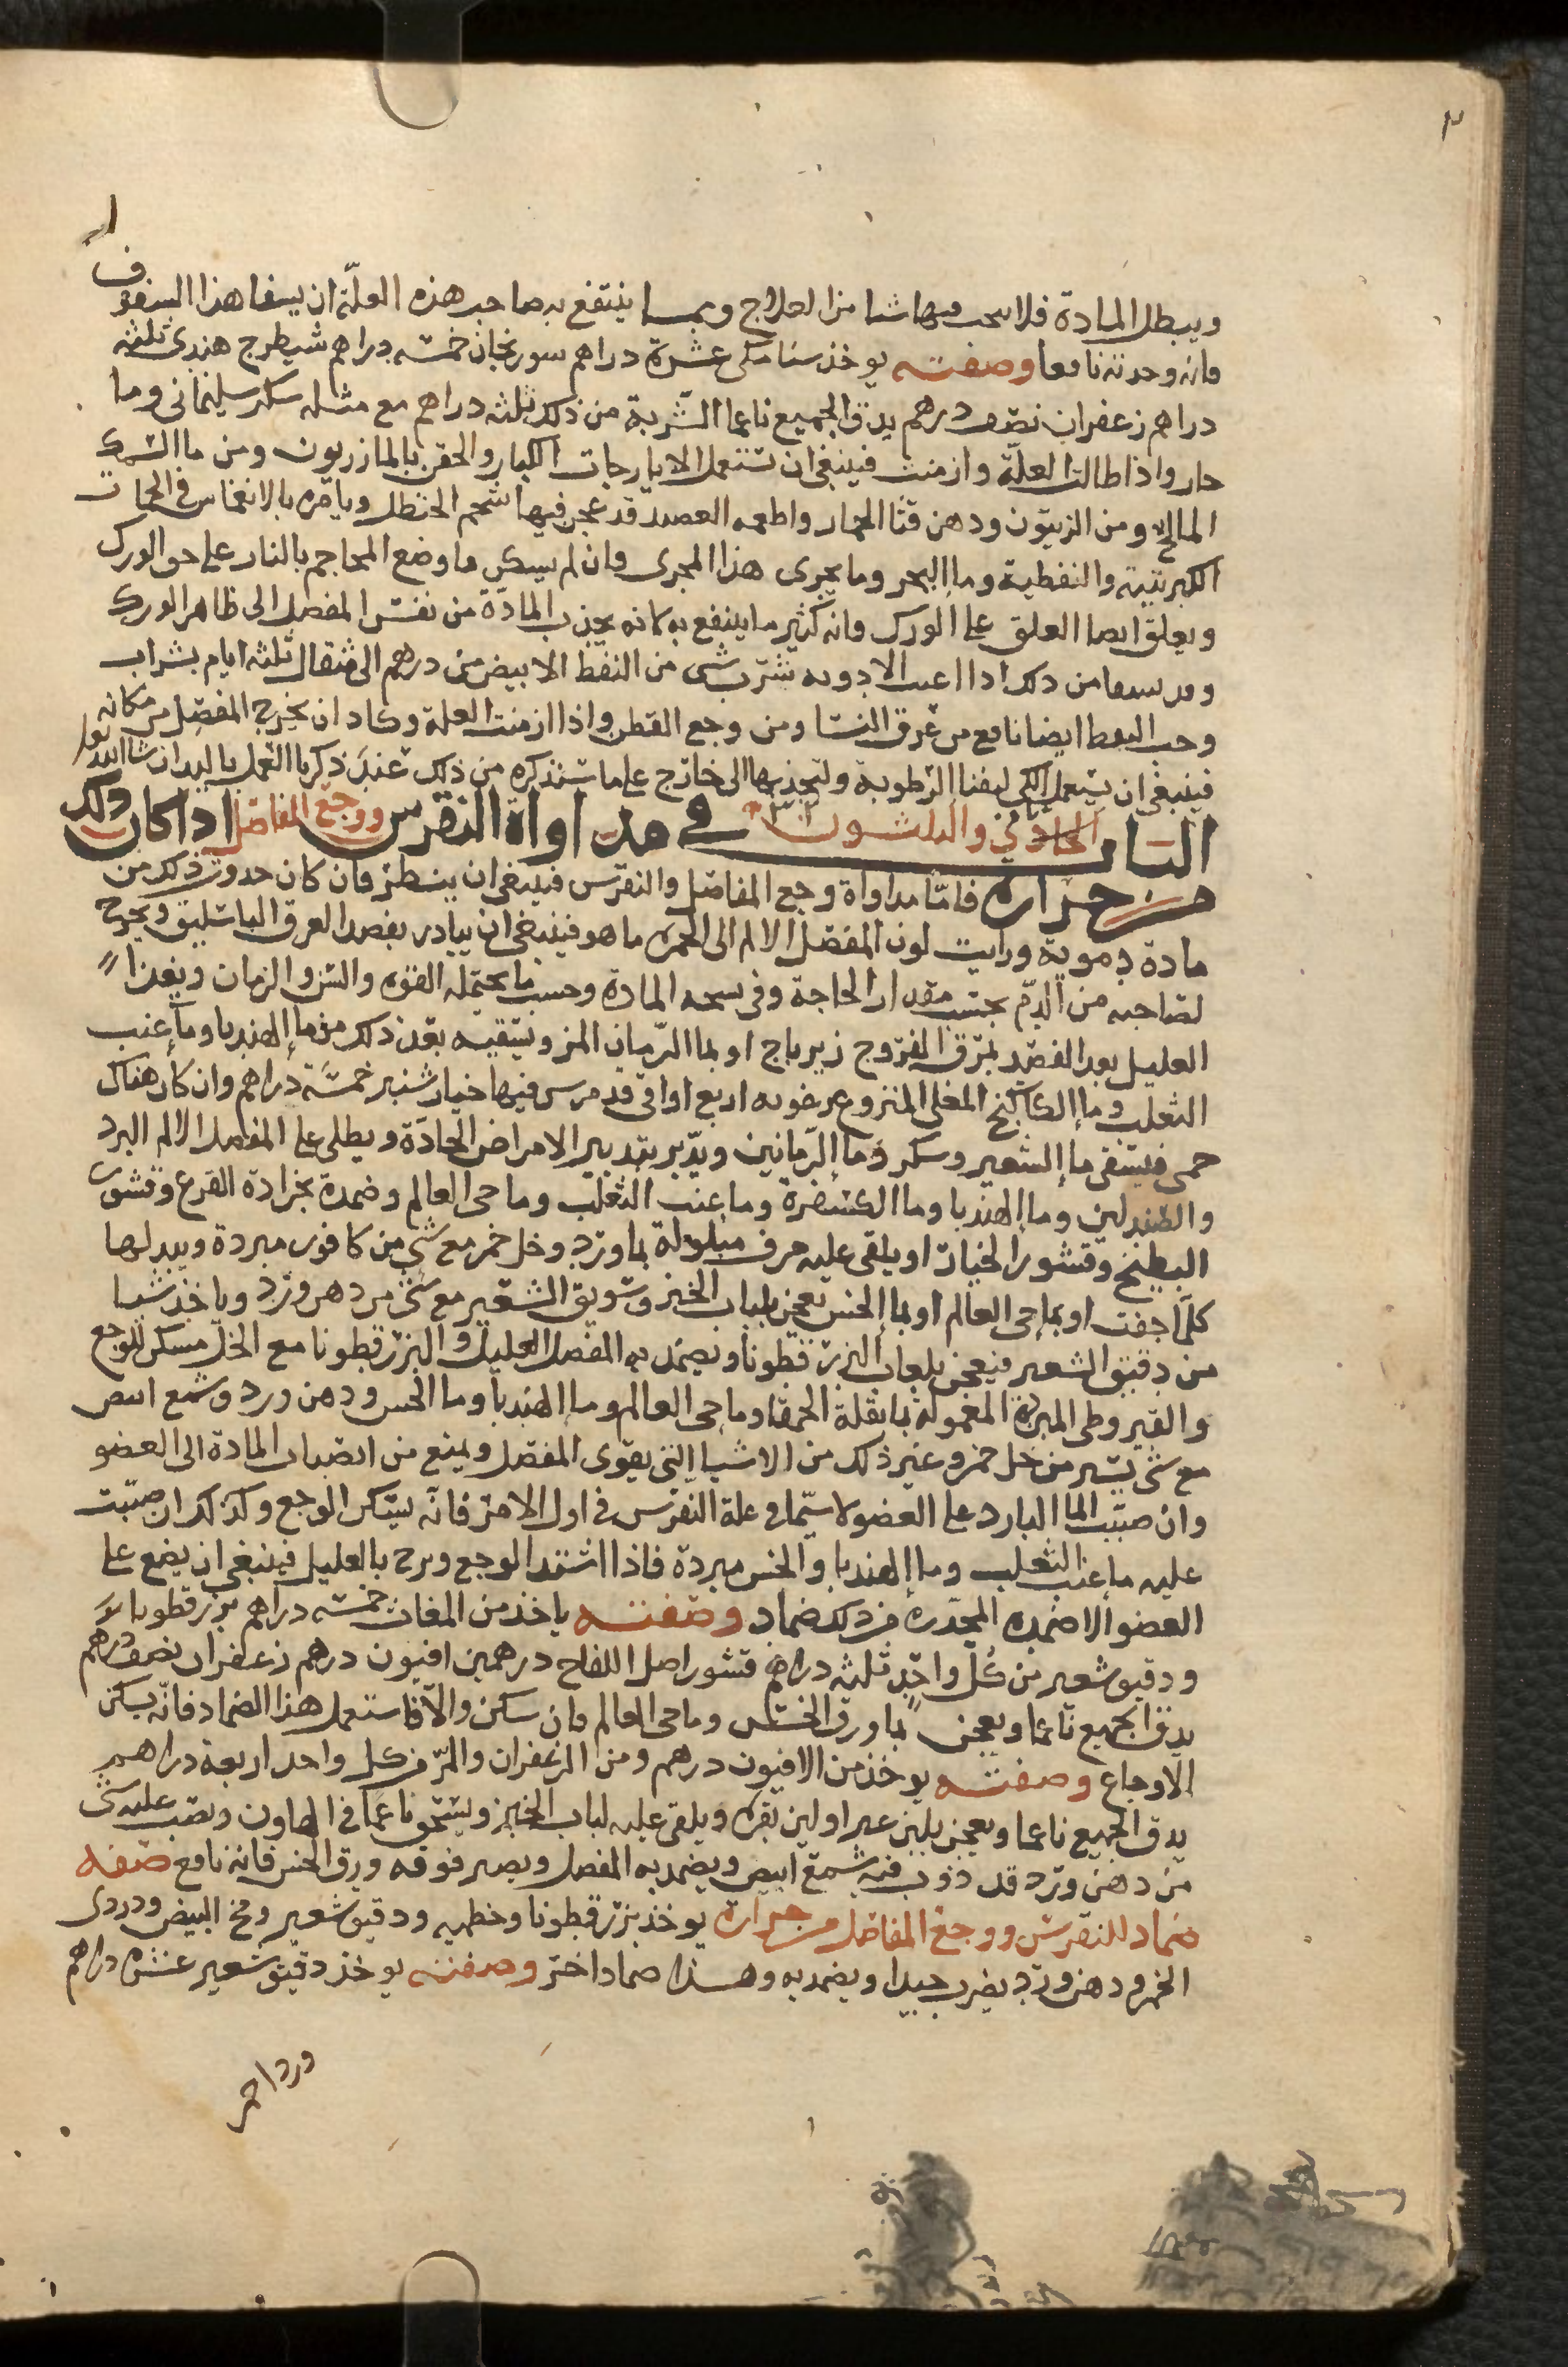 ٣
ويبطل المادة فلا ينجب فيها شيا من العلاج ومما ينتفع به صاحب هذه العلّة ان يسفا هذا السفوف
فانه وجدته نافعا وصفته يوخذ سنا مكى عشرة دراهم سورنجان خمسه دراهم شيطرج هندى ثلثه
دراهم زعفران نصف درهم يدق الجميع ناعما الشربة من ذلك ثلثه دراهم مع مثله سكر سليمانى وما
حار واذا طالت العلّة وازمنت فينبغى ان تستعمل الايارجات الكبار والحقن بالمازريون ومن ما السمك
المالح ومن الزيتون ودهن قثا الحمار واطعمه العصيد قد عجن فيها شحم الحنظل ويامره بالانغماس فى الحمات
الكبريتية والنفطية وما البحر وما يجرى هذا المجرى فان لم يسكن فاوضع المحاجم بالنار على حق الورك
ويعلق ايضا العلق على الورك فانه كثير ما ينتفع به لانه يجذب المادة من نفس المفصل الى ظاهر الورك
وقد ينفعا من ذلك اذا اعيت الادويه شرب شى من النفط الابيض من درهم الى مثقال ثلثه ايام بشراب
وحب النفط ايضا نافع من عرق النسا ومن وجع القطن واذا ازمنت العلة وكاد ان يخرج المفصل من مكانه
فينبغى ان يستعمل الكى ليفنا الرطوبة ولتجذبها الى خارج على ما ستذكره من ذلك عند ذكرنا العمل باليد ان شا الله تعا
الباب الحادي والثلثون فى مداواة النقرس ووجع المفاصل اذا كان ذلك
من حرارة فامّا مداواة وجع المفاصل والنقرس فينبغى ان ينظر فان كان حدوث ذلك من
مادة دموية ورايت لون المفصل الالم الى الحمره ما هو فينبغى ان يبادر بفصد العرق الباسليق ويخرج
لصاحبه من الدم بحسب مقدار الحاجة وفى سحه المادة وحسب ما يحتمله القوه والسن والزمان ويغذا
العليل بعد الفصد بمرق الفروج زيرباج او بما الرمان المز ونسقيه بعد ذلك من ما الهندبا وما عنب
الثعلب وما الكاكنج المغلى المنزوع رغوته اربع اواقى قد مرس فيها خيار شنبر خمسة دراهم وان كان هناك
حمى فيسقى ما الشعير وسكر وما الرمانين ويدبر بتدبير الامراض الحادة ويطلى على المفصل الالم البرد
والصندلين وما الهندبا وما الكسفرة وما عنب الثعلب وما حى العالم وضمده بخرادة القرع وقشور
البطيخ وقشور الخيار او يلقى عليه خرق مبلولة بما ورد وخل خمر مع شى من كافور مبردة ويبدلها
كلما جفت او بما حى العالم او بما الخس يعجن بلباب الخبز وسويق الشعير مع شى من دهن ورد وياخذ شيا
من دقيق الشعير فيعجن بلعاب البزر قطونا ويضمد به المفصل العليل والبزر قطونا مع الخل مسكن للوجع
والقيروطى المبرد المعمولة بما بقلة الحمقا وما حى العالم وما الهندبا وما الخس ودهن ورد وشمع ابيض
مع شى يسير من خل خمر وغير ذلك من الاشيا التى يقوى المفصل ويمنع من انصباب المادة الى العضو
وان صبّت الما البارد على العضو لا سيّما فى علة النقرس فى اول الامر فانه يسكن الوجع وكذلك ان صبّبت
عليه ما عنب الثعلب وما الهندبا والخس مبردة فاذا اشتد الوجع وبرح بالعليل فينبغى ان يضع على
العضو الاضمده المخدره من ذلك ضماد وصفته ياخذ من المغاث خمسه دراهم بزر قطونا
ودقيق شعير من كل واحد ثلثه دراهم قشور اصل اللفاح درهمين افيون درهم زعفران نصف درهم
يدق الجميع ناعما ويعجن بما ورق الخس وما حى العالم فان سكن والا فاستعمل هذا الضماد فانه يسكن
الاوجاع وصفته يوخذ من الافيون درهم ومن الزعفران والمر من كل واحد اربعة دراهم
يدق الجميع ناعما ويعجن بلبن عنز او لبن بقره ويلقى عليه لباب الخبز ويسحق ناعما فى الهاون ويصب عليه شى
من دهن ورد قد ذوب فيه شمع ابيض ويضمد به المفصل ويصير فوقه ورق الخس فانه نافع صفه
ضماد للنقرس ووجع المفاصل من حرارة يوخذ بزر قطونا وخطميه ودقيق شعير ومخ البيض ودردى
الخمر ودهن ورد يضرب جيدا ويضمد به وهذا ضماد اخر وصفته يوخذ دقيق شعير عشره دراهم
ورد احمر